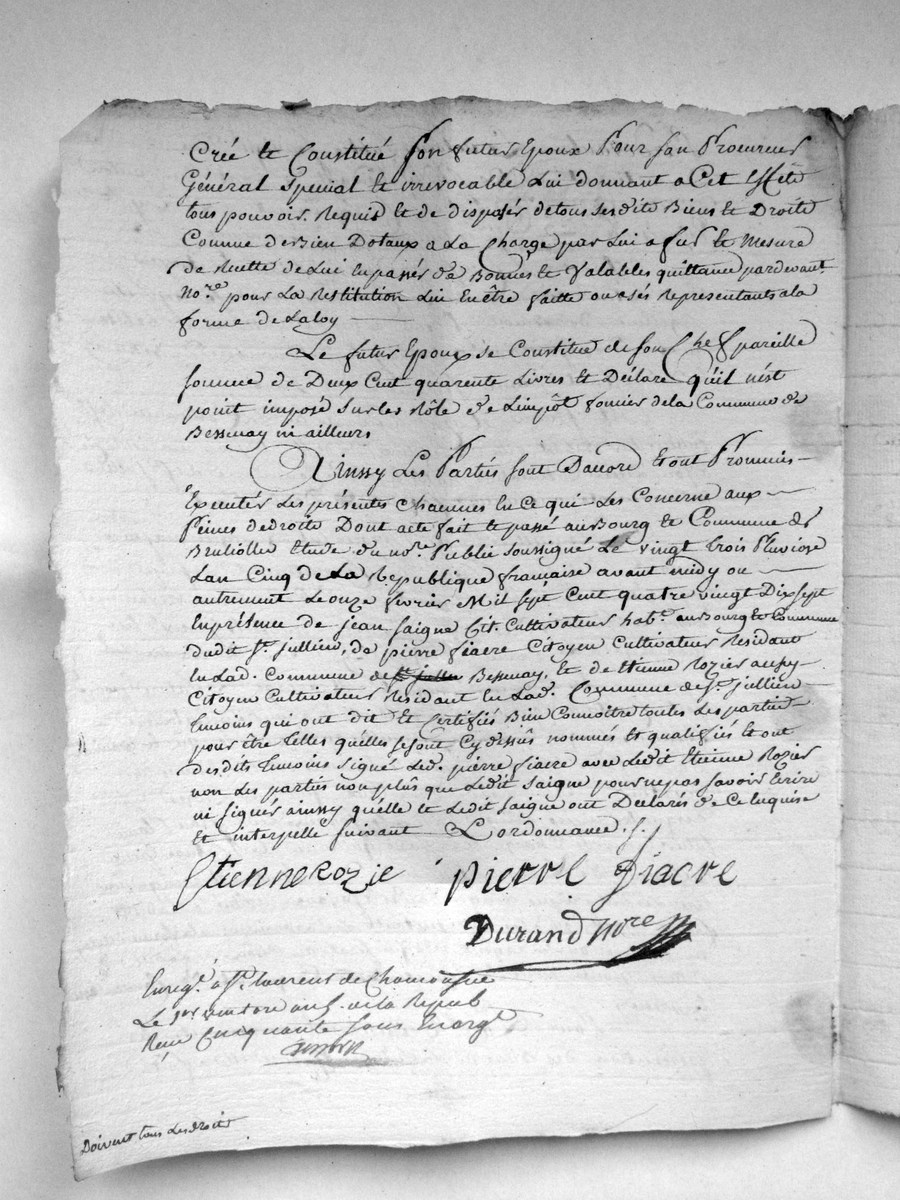 Créé et Constitué son futur Epoux Pour son Procureur
Général spécial et irrevocable Lui donnant a Cet Effét
tous pouvoirs Requis et de disposér de tous sesdits Biens et Droits
Comme de Bien Dotaux a La Charge par Lui a fur et Mesure
de Recette de Lui En passér de Bonnes et Valables quittance pardevant
No.re pour La Restitution Lui En être faitte ou a sés Representants a la
forme de La loy
Le futur Epoux se Constitue de son Chef pareille
somme de Deux Cent quarente Livres et Déclare qu'il nést
point imposé sur Les Rôle de Limpôt foncier de la Commune de
Bessenay ni ailleurs
Ainssy Les Partiés sont Dacord et ont Promis
Executér Les présentes Chacunes En Ce qui Les Concerne aux
Peines de droits Dont acte fait et passé au Bourg et Commune de
Brulliolles Etude du no.re Public soussigné Le vingt trois Pluviose
Lan Cinq de La Republique francaise avant midy ou
autrement Le onze fevrier Mil sept Cent quatre vingt Dix sept
En présence de jean Saigne Cit. Cultivateur hab.t au Bourg et Commune
dudit St. jullien, de pierre fiacre Citoyen Cultivateur Residant
En Lad. Commune de st. jullien Bessenay, et de Etienne Rozier aussy
Citoyen Cultivateur Residant En Lad. Commune de St. jullien
temoins qui ont dit et Certifiés Bien Connoitre toutes Les partiés
pour être telles quélles se sont Cy dessûs nommés et qualifiés et ont
des dits temoins signé Led. pierre fiacre avec Ledit Etienne Rozier
non Les parties non plûs que Ledit Saigne pour ne pas savoir Ecrire
ni signér ainssy quélle et Ledit Saigne ont Déclarés de Ce Enquise
et interpellé suivant L'ordonnance ./.
Etienne Rozie pierre fiacre
Durand nore
Enreg.é a St. laurent de Chamousset
Le 1er ventose an 5. de la Repub
Recu Cinquante sous
Doivent tous Les droits